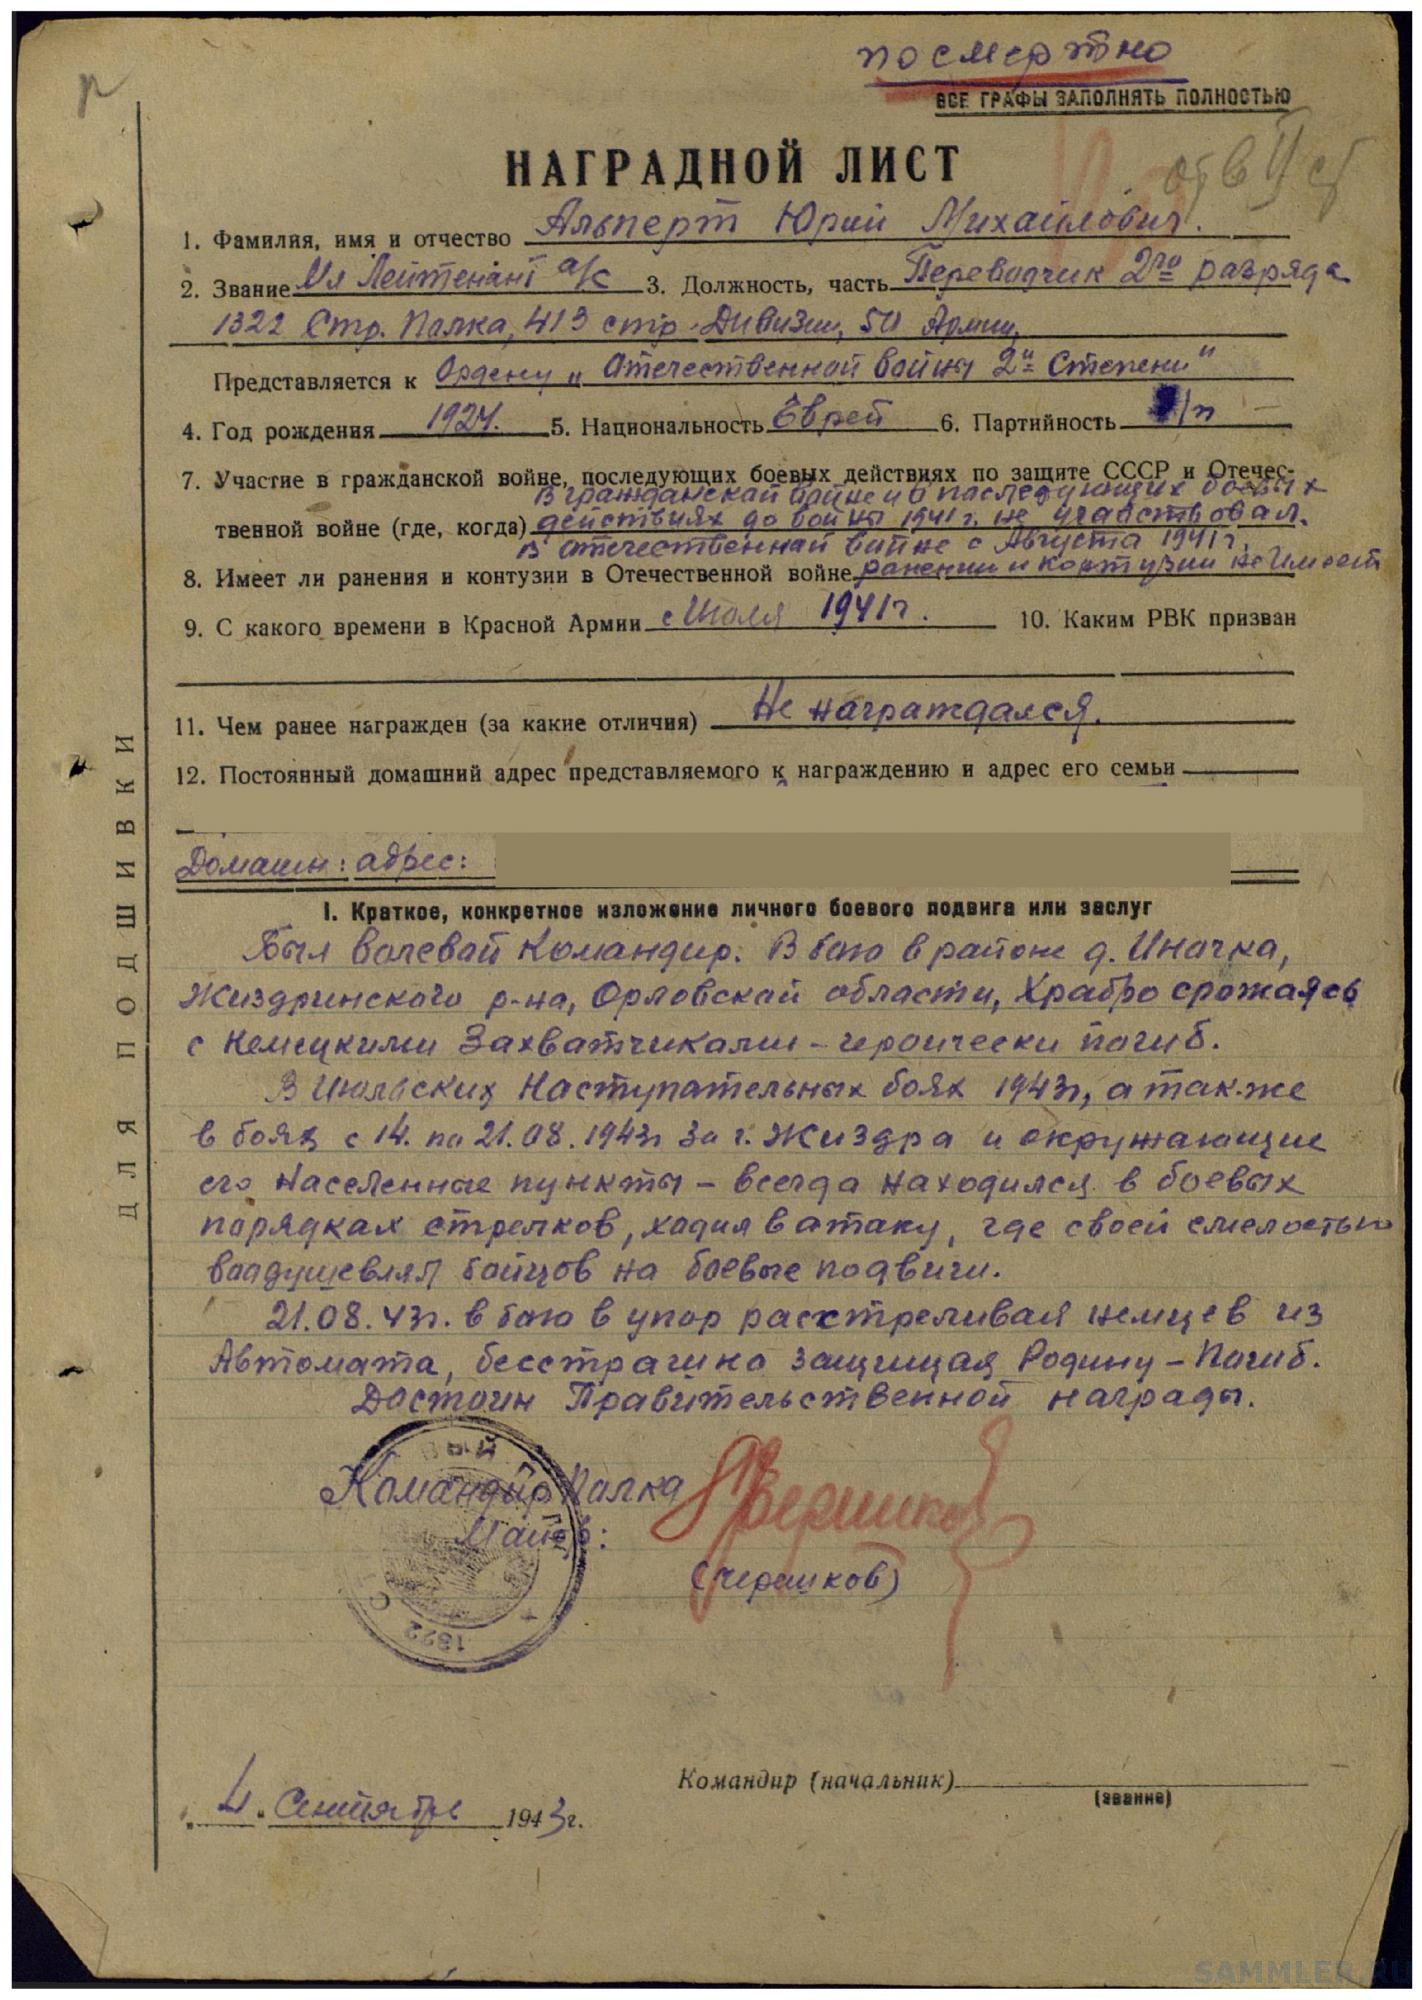 посмертно
ВСЕ ГРАФЫ ЗАПОЛНЯТЬ ПОЛНОСТЬЮ
НАГРАДНОЙ ЛИСТ
1. Фамилия, имя и отчество Альперт Юрий Михайлович.
2. Звание Мл Лейтенант а/с 3. Должность, часть Переводчик 2го разряда
1322 Стр. Полка, 413 стр. Дивизии, 50 Армии,
Представляется к Ордену „Отечественной войны 2й Степени"
4. Год рождения 1924. 5. Национальность Еврей 6. Партийность б/п
7. Участие в гражданской войне, последующих боевых действиях по защите СССР и Отечес-
В гражданской войне и в последующих боевых
твенной войне (где, когда) действиях до войны 1941 г. не участвовал.
В отечественной войне с Августа 1941 г.
8. Имеет ли ранения и контузии в Отечественной войне ранении и контузии не имеет
9. С какого времени в Красной Армии с Июля 1941 г. 10. Каким РВК призван
11. Чем ранее награжден (за какие отличия) Не награждался.
12. Постоянный домашний адрес представляемого к награждению и адрес его семьи
Домашн: адрес:
I. Краткое, конкретное изложение личного боевого подвига или заслуг
Был волевой Командир. В бою в районе д. Иночка,
Жиздринского р-на, Орловской области, Храбро срожаясь
с Немецкими Захватчиками – героически погиб.
В Июльских Наступательных боях 1943г, а так-же
в боях с 14. по 21.08.1943г за г. Жиздра и окружающие
его Населенные пункты – всегда находился в боевых
порядках стрелков, ходил в атаку, где своей смелостью
воодушевлял бойцов на боевые подвиги.
21.08.43г. в бою в упор расстреливая немцев из
Автомата, бесстрашно защищая Родину – Погиб.
Достоин Правительственной награды.
Командир Полка
Майор:
(Черешков)
1322
Командир (начальник)
(звание)
„4" Сентября 1943 г.
ДЛЯ ПОДШИВКИ
SAMMLER.RU